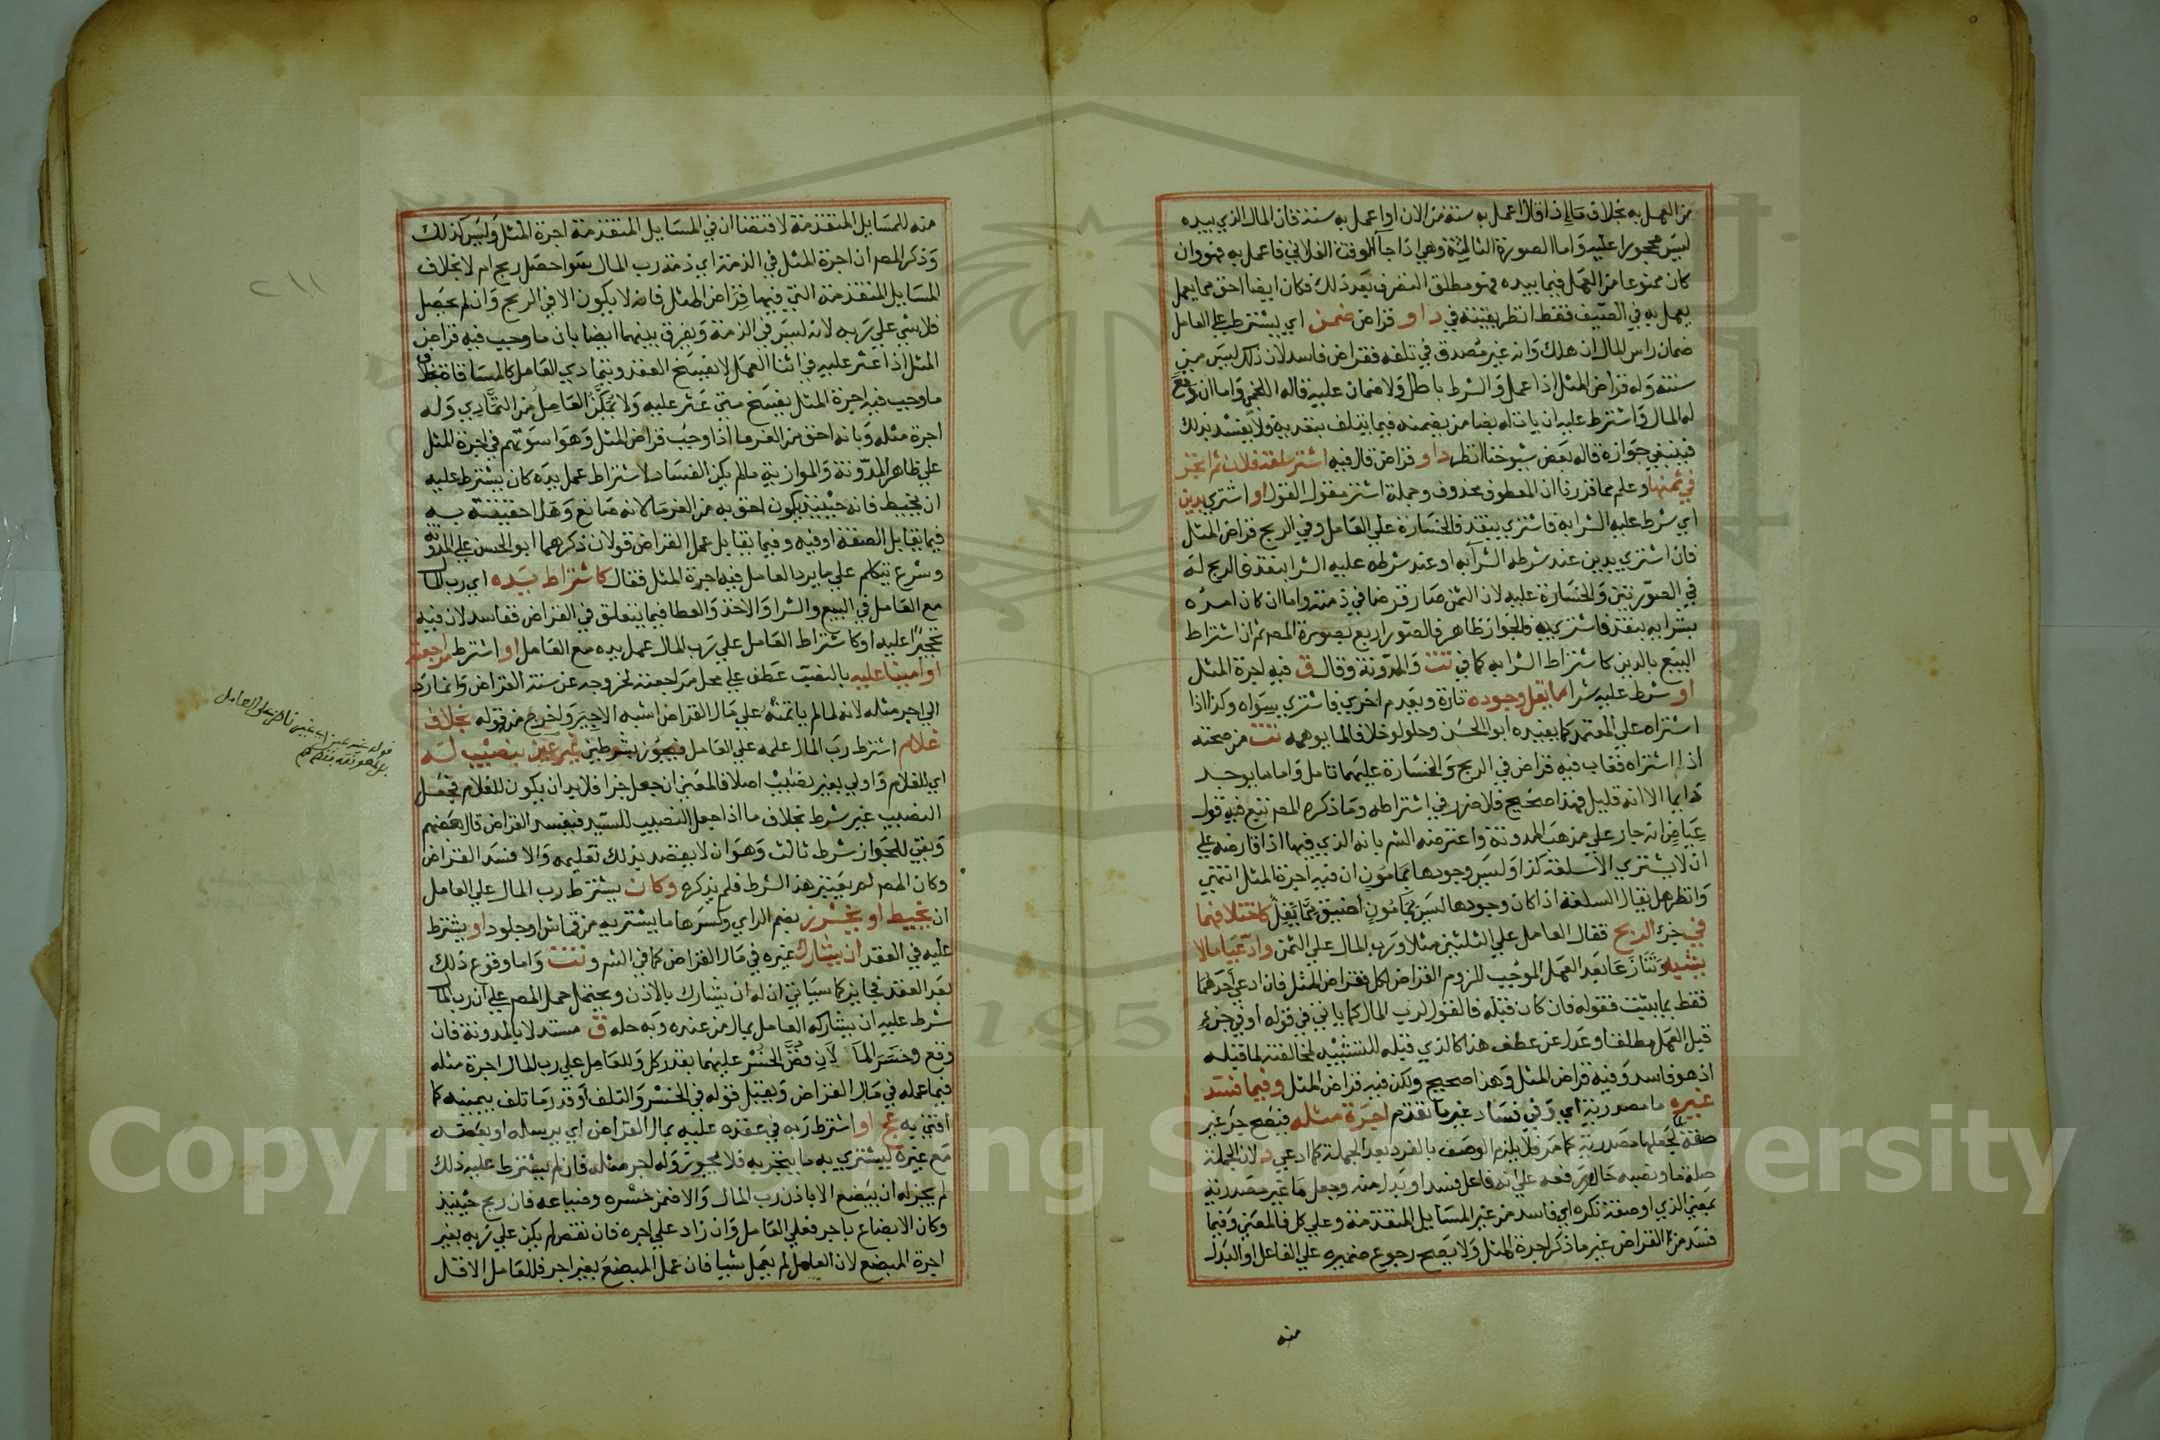 من العمل به بخلاف ما إذا قال اعمل به سنة من الان او اعمل به سنة فان المال الذي بيده
ليس محجورا عليه واما الصورة الثالثة وهي اذا جا الوقت الفلاني فاعمل به فهو وان
كان ممنوعا من العمل فيما بيده فهو مطلق التصرف بعد ذلك فكان ايضا احق مما يعمل
يعمل به في الصيف فقط انظر بقيته في د او قراض ضمن اي يشترط على العامل
ضمان راس المال ان هلك وانه غير مصدق في تلفه فقراض فاسد لان ذلك ليس من
سنته وله قراض المثل اذا عمل والشرط باطل ولا ضمان عليه قاله اللخمي واما ان دفع
له المال واشترط عليه ان ياتيه بضامن يضمنه فيما يتلف بتعديه ولا يفسد بذلك
فينبغي جوازه قاله بعض شيوخنا انظر د او قراض قال فيه اشتر سلعة فلان ثم اتجر
في ثمنها وعلم مما قررنا ان المعطوف محذوف وجملة اشتر مقول القول او اشتري بدين
اي شرط عليه الشرا به فاشتري بنقد فالخسارة علي العامل وفي الربح قراض المثل
فان اشتري بدين عند شرطه الشرا به او عند شرطه عليه الشرا بنقد فالربح له
في الصورتين والخسارة عليه لان الثمن صار قرضا في ذمته واما ان كان امره
بشرا به بنقد فاشتري به فالجواز ظاهر فالصور اربع بصورة المص ثم ان اشتراط
البيع بالدين كاشتراط الشرا به كما في تت والمدونة وقال ق فيه اجرة المثل
او شرط عليه شرا ما يقل وجوده تارة ويعدم اخري فاشتري سواه وكذا اذا
اشتراه علي المعتمد كما يفيده ابو الحسن وحلولو خلافا لما يوهمه تت من صحته
اذا اشتراه فغاب فيه قراض في الربح والخسارة عليهما تامل واما ما يوجد
دايما الا انه قليل فهذا صحيح فلا ضرر في اشتراطه وما ذكره المص تبع فيه قول
عياض انه جار علي مذهب المدونة واعترضه الشر بانه الذي فيها اذا قارضه علي
ان لا يشتري الا سلعة كذا وليس وجودها بمامون ان فيه اجرة المثل انتهي
وانظر هل يقال السلعة اذا كان وجودها ليس بمامون اضيق مما يقل كاختلافهما
في جزء الربح فقال العامل علي الثلثين مثلا ورب المال علي الثمن وادعيا ما لا
يشبه وتنازعا بعد العمل الموجب للزوم القراض لكل فقراض المثل فان ادعي احدهما
فقط بما يثبت فقوله فان كان قبله فالقول لرب المال كما ياتي في قوله او في جزء
قبل العمل مطلقا وعدل عن عطف هذا كالذي قبله للتشبيه لمخالفته لما قبله
اذ هو فاسد وفيه قراض المثل وهذا صحيح ولكن فيه قراض المثل وفيما فسد
غيره ما مصدرية اي وفي فساد غير ما تقدم اجرة مثله فيصح جر غير
صفة لجعلها مصدرية كما مر فلا يلزم الوصف بالمفرد بعد الجملة كما ادعي د لان الجملة
صلة ما ونصبه حال ورفعه علي انه فاعل فسد او بدل منه وجعل ما غير مصدرية
بمعني الذي او صفة نكرة اي فاسد من غير المسايل المتقدمة وعلي كل فالمعني وفيما
فسد من القراض غير ما ذكر اجرة المثل ولا يصح رجوع ضميره علي الفاعل او البدل
منه
منه للمسايل المتقدمة لاقتضا ان في المسايل المتقدمة اجرة المثل وليس كذلك
وذكر المص ان اجرة المثل في الذمة اي ذمة رب المال سوا حصل ربح ام لا بخلاف
المسايل المتقدمة التي فيها قراض المثل فانه لا يكون الا في الربح وان لم يحصل
فلا شي علي ربه لانه ليس في الذمة ويفرق بينهما ايضا بان ما وجب فيه قراض
المثل اذا عثر عليه في اثنا العمل لا يفسخ العقد ويتمادي العامل كالمساقاة بخلاف
ما وجب فيه اجرة المثل يفسخ متي عثر عليه ولا يمكن العامل من التمادي وله
اجرة مثله وبانه احق من الغرما اذا وجب قراض المثل وهو اسوتهم في اجرة المثل
علي ظاهر المدونة والموازية مالم يكن الفساد لاشتراط عمل يده كان يشترط عليه
ان يخيط فانه حينيذ يكون احق به من الغرما لانه صانع وهل احقيته به
فيما يقابل الصنعة او فيه وفيما يقابل عمل القراض قولان ذكرهما ابو الحسن علي المدونة
وشرع يتكلم علي ما يرد العامل فيه اجرة المثل فقال كاشتراط يده اي رب المال
مع العامل في البيع والشرا والاخذ والعطا فيما يتعلق في القراض ففاسد لان فيه
تحجيرا عليه او كاشتراط العامل علي رب المال عمل يده مع العامل او اشترط مراجعته
او امينا عليه بالنصب عطف علي محل مراجعته لخروجه عن سنة القراض وانما رد
الي اجر مثله لانه لما لم ياتمنه علي مال القراض اشبه الاجير واخرج من قوله بخلاف
غلام اشترط رب المال عمله علي العامل فيجوز بشرطين غير عين بنصيب له
اي للغلام واولي بغير نصيب اصلا فالمعني ان جعل جزا فلا بد ان يكون للغلام فجعل
النصيب غير شرط بخلاف ما اذا جعل النصيب للسيد فيفسد القراض قال بعضهم
وبقي للجواز شرط ثالث وهو ان لا يقصد بذلك تعليمه والا فسد القراض
وكان المص لم يعتبر هذا الشرط فلم يذكره وكان يشترط رب المال علي العامل
ان يخيط او يخرز بضم الراي وكسرها ما يشتريه من قماش او جلود او يشترط
عليه في العقد ان يشارك غيره في مال القراض كما في الشر وتت واما وقوع ذلك
بعد العقد فجايز كما سياتي ان له ان يشارك بالاذن ويحتمل حمل المص علي ان رب المال
شرط عليه ان يشاركه العامل بمال من عنده وبه حله ق مستدلا بالمدونة فان
وقع وخسر المال لان فض الخسر عليهما بقدر كل وللعامل علي رب المال اجرة مثله
فيما عمله في مال القراض ويقبل قوله في الخسر والتلف او قدر ما تلف بيمينه كما
افتي به عج او اشترط ربه في عقده عليه بمال القراض اي يرسله او بعضه
مع غيره ليشتري به ما يتجر به فلا يجوز وله اجر مثله فان لم يشترط عليه ذلك
لم يجز له ان يبضع الا باذن رب المال والا ضمن خسره وضياعه فان ربح حينيذ
وكان الابضاع باجر فعلي العامل وان زاد علي اجره فان نقص لم يكن علي ربه بغير
اجرة المبضع لان العامل لم يعمل شيا فان عمل المبضع بغير اجر فللعامل الاقل
٢١١